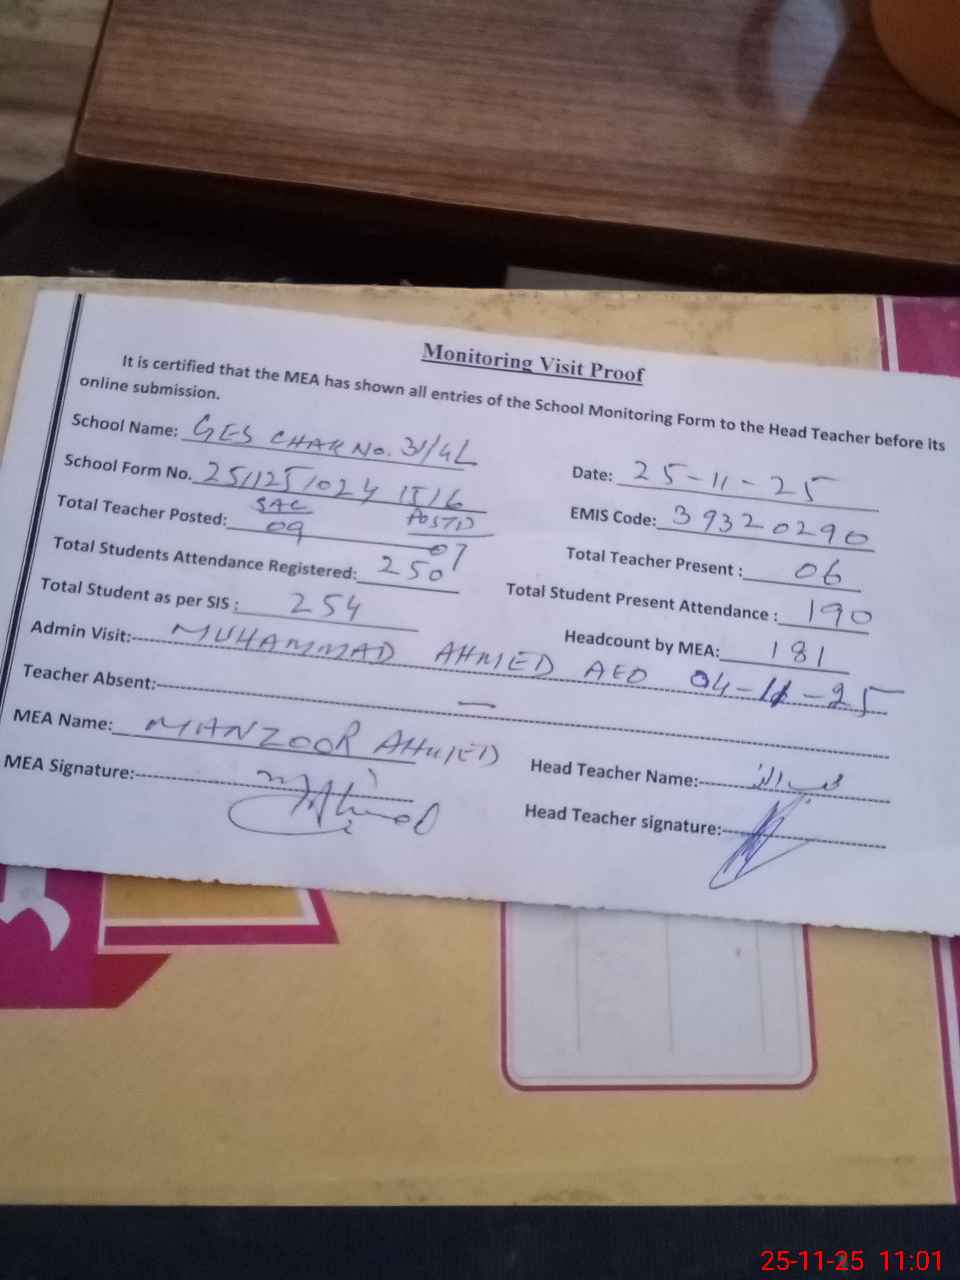 Monitoring Visit Proof
It is certified that the MEA has shown all entries of the School Monitoring Form to the Head Teacher before its
online submission.
School Name: GES CHAK No. 31/4L
Date: 25-11-25
School Form No. 251125102415 16
EMIS Code: 39320290
SAC POSTD
Total Teacher Posted: 09 07
Total Teacher Present : 06
Total Students Attendance Registered: 250
Total Student Present Attendance : 190
Total Student as per SIS : 254
Headcount by MEA: 181
Admin Visit: MUHAMMAD AHMED AEO 04-11-25
Teacher Absent: —
MEA Name: MANZOOR AHMED
Head Teacher Name:
MEA Signature:
Head Teacher signature:
25-11-25 11:01